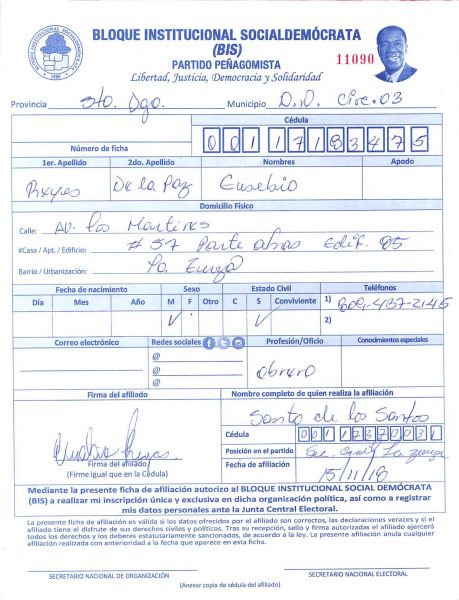 BLOQUE INSTITUCIONAL SOCIALDEMÓCRATA
(BIS)
PARTIDO PEÑAGOMISTA
Libertad, Justicia, Democracia y Solidaridad
11090
Provincia Sto. Dgo. Municipio D.N. Circ. 03
Cédula
Número de ficha 00117183475
1er. Apellido 2do. Apellido Nombres Apodo
Reyes De la Paz Eusebio
Domicilio Físico
Calle: Av. los Martires
#Casa / Apt. / Edificio: # 57 Parte atras Edif. 05
Barrio / Urbanización: La Zurza
Fecha de nacimiento Sexo Estado Civil Teléfonos
Día Mes Año M F Otro C S Conviviente 1) 809-437-2145
2)
Correo electrónico Redes sociales Profesión/Oficio Conocimientos especiales
@
@
@
obrero
Firma del afiliado Nombre completo de quien realiza la afiliación
Santo de los Santos
Cédula
Posición en el partido La Zurza
Fecha de afiliación 15/11/18
Firma del afiliado
(Firme igual que en la Cédula)
Mediante la presente ficha de afiliación autorizo al BLOQUE INSTITUCIONAL SOCIAL DEMÓCRATA
(BIS) a realizar mi inscripción única y exclusiva en dicha organización política, así como a registrar
mis datos personales ante la Junta Central Electoral.
La presente ficha de afiliación es válida si los datos ofrecidos por el afiliado son correctos, las declaraciones veraces y si el afiliado
tiene el disfrute de sus derechos civiles y políticos. Tras su recepción, sello y firma autorizadas el afiliado ejercerá
todos los derechos y los deberes estatutariamente sancionados, de acuerdo a la ley. La presente afiliación anula cualquier
afiliación realizada con anterioridad a la fecha que aparece en esta ficha.
SECRETARIO NACIONAL DE ORGANIZACIÓN SECRETARIO NACIONAL ELECTORAL
(Anexar copia de cédula del afiliado)